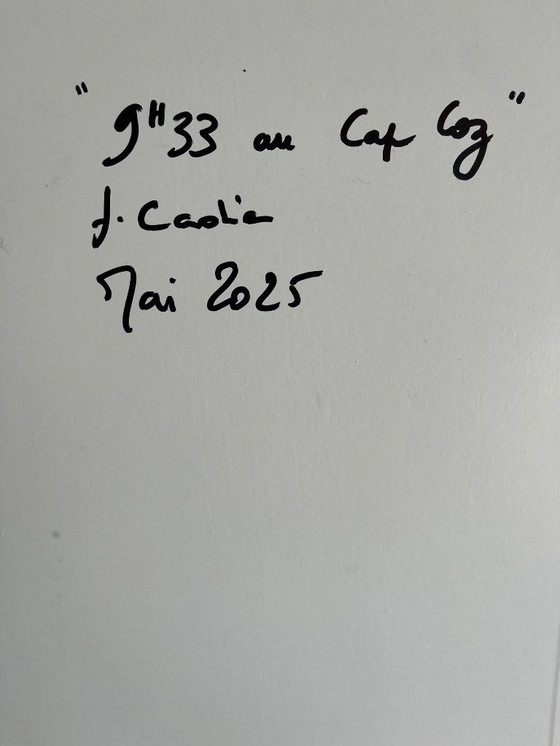 "9H33 au Cap Coz"
J.
Mai 2025